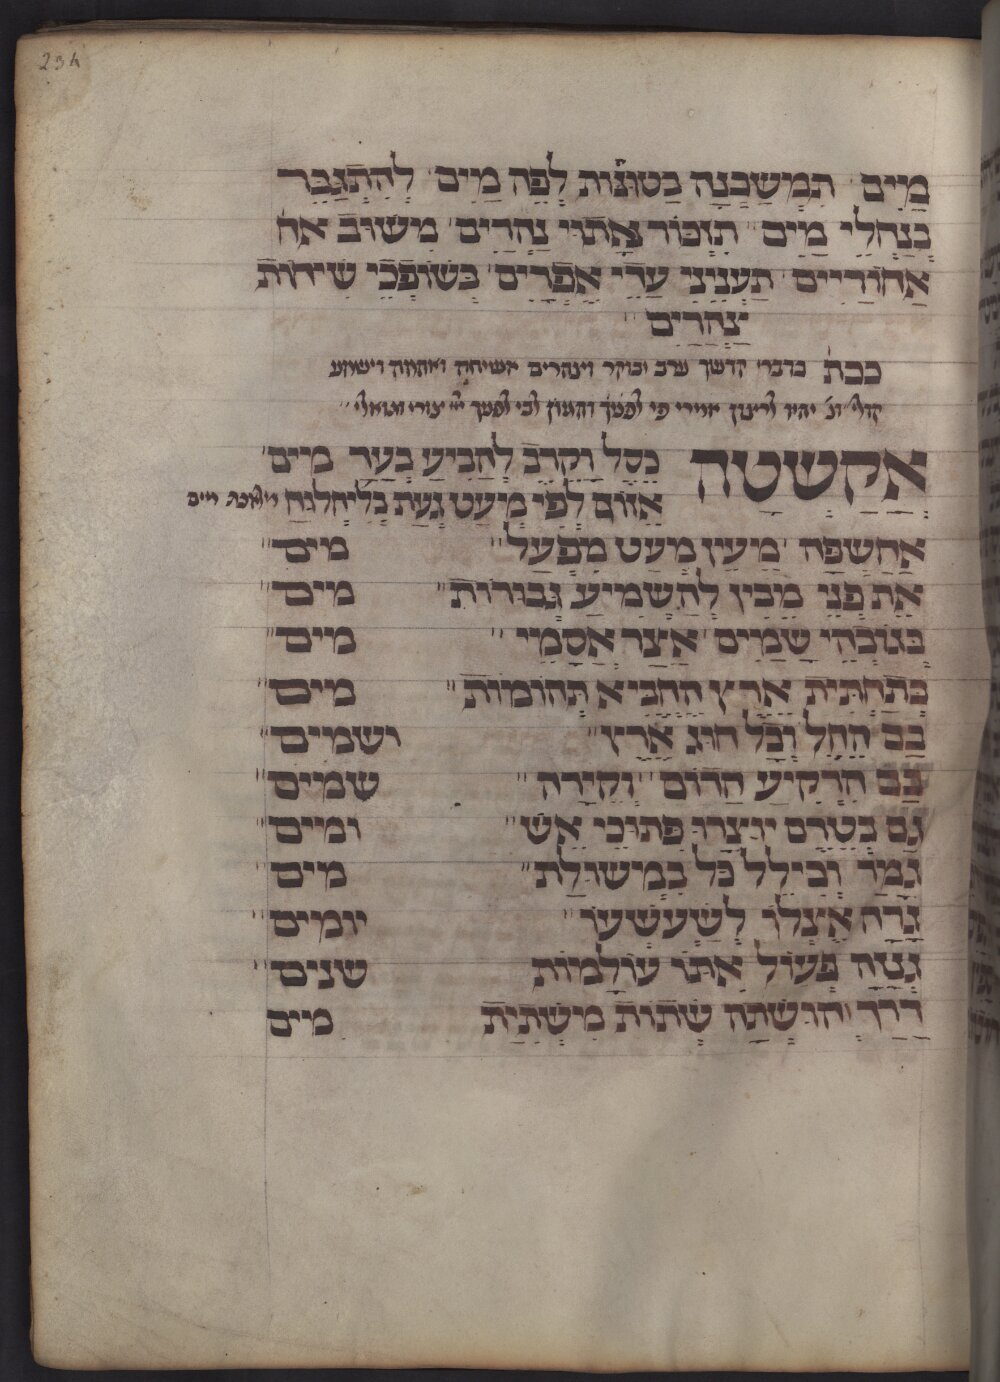 234
מַיִם תִמָשְׁכֶנָה בַטוּנוֹת לְפֵה מַיִם לְהִתְגַבֵּר
כְנַחֲלֵי מַיִם תִזְכּוֹר אֲתוּי נַהֲרַיִם מִשׁוּב אֹח
אֲחוֹרַיִים תַעֲנִינִי עֲרֵי אֶפְרַיִם בְּשׁוֹפְכֵי שִׂיחוֹת
צָהֳרַיִם
ככת בדברי קדשך ערב ובוקר וצהרים אשיחה ואהמה וישמע
קולי ונ' יהיו לרצון אמרי פי לפניך והגיון לבי לפניך יי צורי וגואלי
אֲקַשְׁטָה כֶסֶל וָקֶרֶב לְהַבִיעַ בְעֵר מַיִם
אֲזוֹם לְפִי מְעַט גָעַת
אֶחְשְׂפָה מֵעֵין מְעַט מִפְעַל מים
אֶת פְנֵי מֵבִין לְהַשְׁמִיעַ גְבוּרוֹת מים
בְּגוֹבְהֵי שָׁמַיִם אִצֵר אֲסָמֵי מים
בְּתַחְתִּית אֶרֶץ הֶחְבִּיא תְּהוֹמוֹת מים
בָּם הֵחֵל וְכָל חוּג אֶרֶץ ושמים
בָּם הִרְקִיעַ הֲדוֹם וְקֵירָה שמים
גַם בְּטֶרֶם יוּצְרוּ פְתוּכֵי אֵשׁ ומים
גָמַר וְכִילֵל כֹּל בִּמְשׁוּלַת מים
גָרָה אֶצְלוֹ לְשַׁעֲשְׁעוֹ יומים
גְנוּזָה פְעוֹל אִתּוֹ עוֹלָמוֹת שנים
דֶרֶךְ הוּשְׁתָּה שָׁתוֹת מִשְׁתִית מים